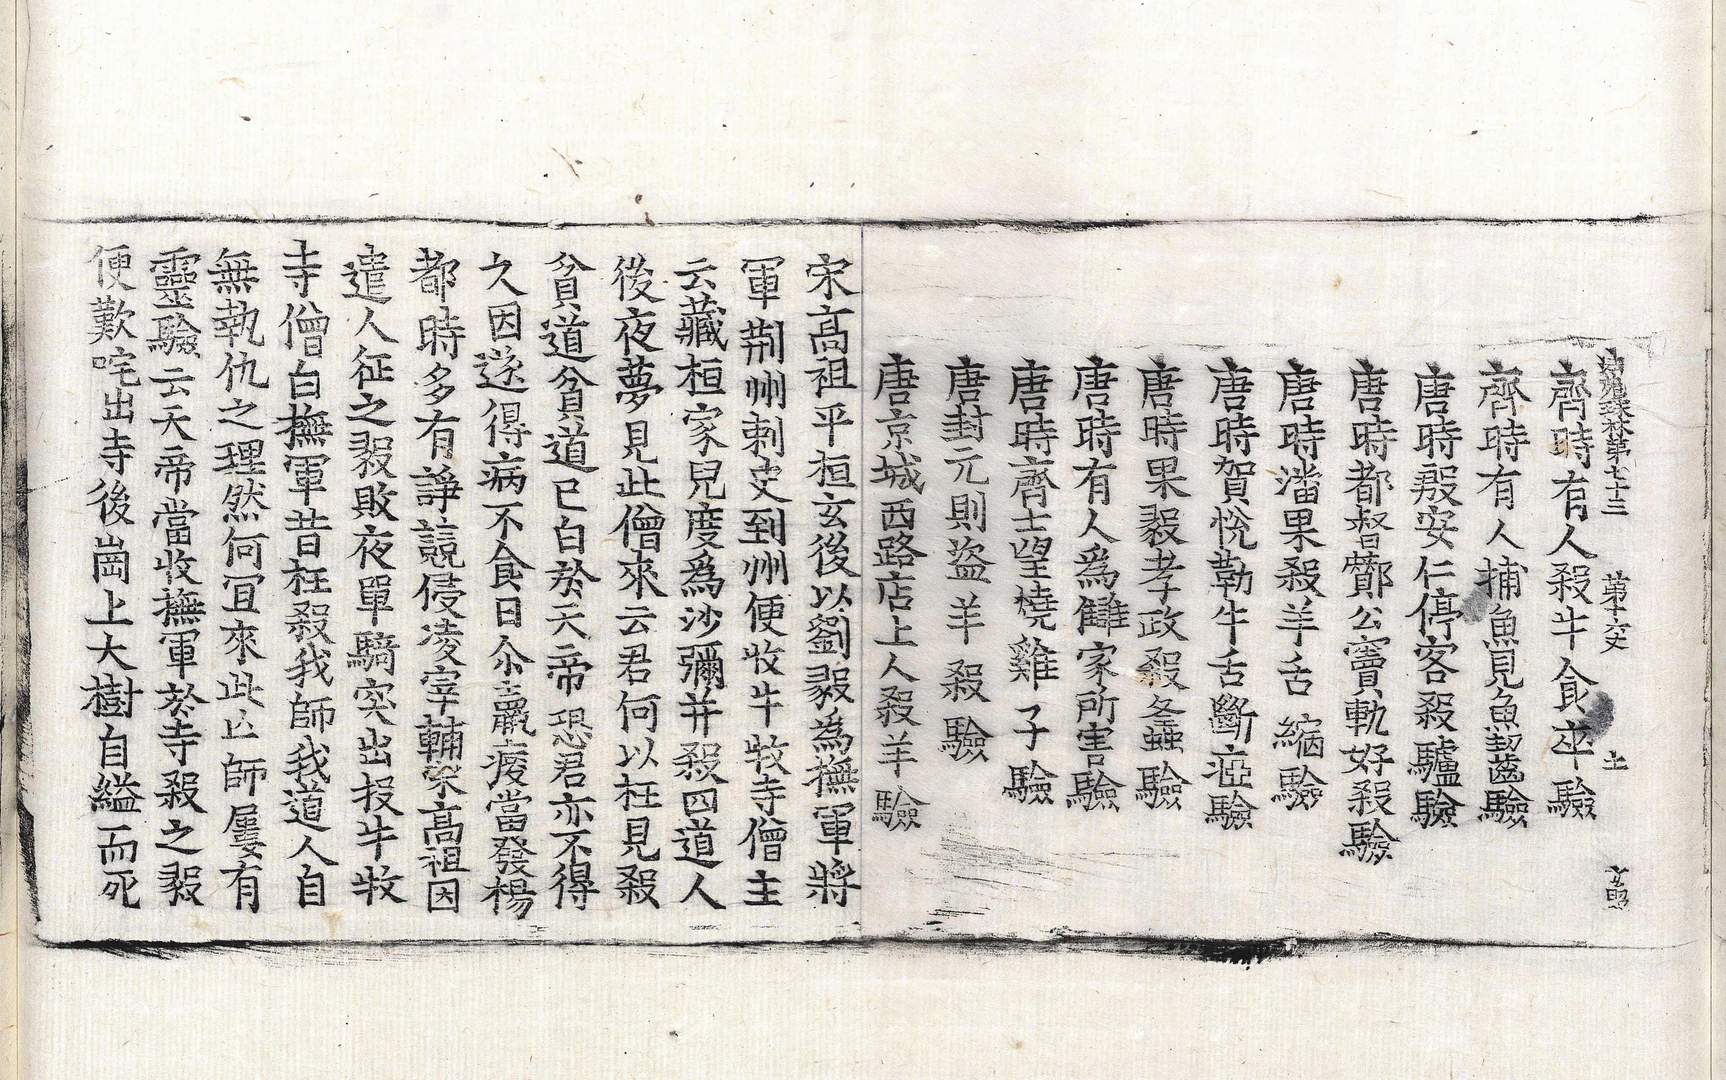 法苑珠林第七十三 第十六丈 土
齊時有人殺牛食卒驗
齊時有人捕魚見魚齧驗
唐時殷安仁停客殺驢驗
唐時都督酇公竇軌好殺驗
唐時潘果殺羊舌縮驗
唐時賀悅勒牛舌斷瘂驗
唐時果毅孝政殺蜂驗
唐時有人爲讎家所害驗
唐時齊士望燒雞子驗
唐封元則盜羊殺驗
唐京城西路店上人殺羊驗
宋高祖平桓玄後以劉毅爲撫軍將
軍荆州刺史到州便收牛牧寺僧主
云藏桓家兒度爲沙彌并殺四道人
後夜夢見此僧來云君何以枉見殺
貧道貧道已白於天帝恐君亦不得
久因遂得病不食日尒羸瘦當發楊
都時多有諍競侵凌宰輔宋高祖因
遣人征之毅敗夜單騎突出投牛牧
寺僧白撫軍昔枉殺我師我道人自
無執仇之理然何冝來此亡師屢有
靈驗云天帝當收撫軍於寺殺之毅
便歎咤出寺後崗上大樹自縊而死